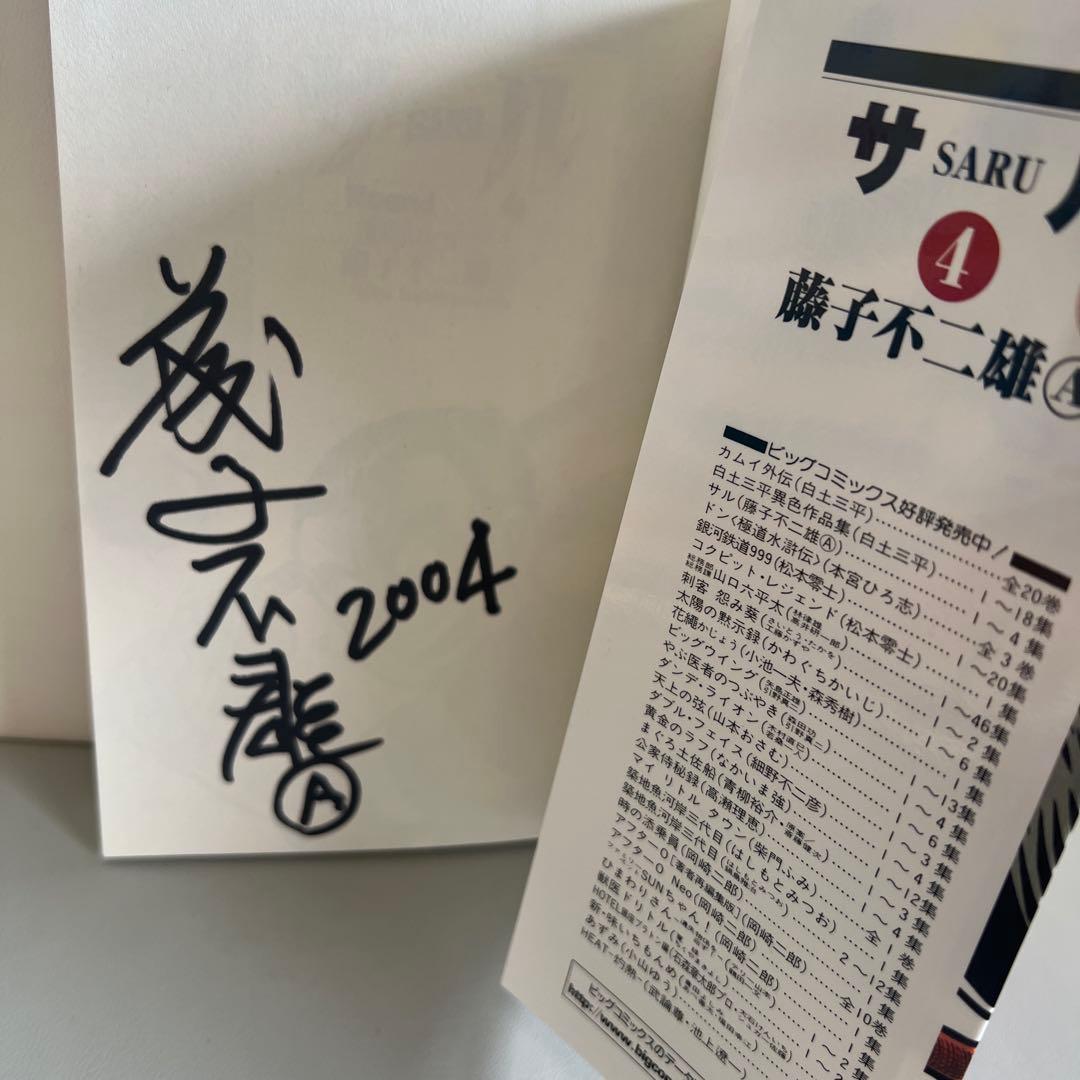 藤子不二雄Ⓐ
2004
サ
SARU
4
藤子不二雄Ⓐ
ビッグコミックス好評発売中!
カムイ外伝(白土三平)……全20巻
白土三平異色作品集(白土三平)……1~18集
サル(藤子不二雄Ⓐ)……1~4集
ドン〈極道水滸伝〉(本宮ひろ志)……全3巻
銀河鉄道999(松本零士)……1~20集
コクピット・レジェンド(松本零士)……1集
総務部総務課山口六平太(林律雄 高井研一郎)……1~46集
刺客 怨み葵(さいとう・たかを 工藤かずや)……1~2集
太陽の黙示録(かわぐちかいじ)……1~6集
花縄かじょう(小池一夫・森秀樹)……1集
ビッグウイング(矢島正雄 引野真二)……1~13集
やぶ医者のつぶやき
ダンデ・ライオン
天上の弦(山本おさむ)
ダブル・フェイス(細野不二彦)
黄金のラフ(なかいま強)
まぐろ土佐船(青柳裕介
公家侍秘録(高瀬理恵)
マイ リトル タウン(柴門ふみ)
築地魚河岸三代目(はしもとみつお)
築地魚河岸三代目
時の添乗員(岡崎二郎)
アフター0[著者再編集版](岡崎二郎)
アフター0 Neo(岡崎二郎)
SUNちゃん!(岡崎二郎)
ひまわりさん
獣医ドリトル
HOTEL
新・味いちもんめ
あずみ(小山ゆう)
HEAT-灼熱-(武論尊・池上遼一)
ビッグコミックスのデータ
http://www.bigcom